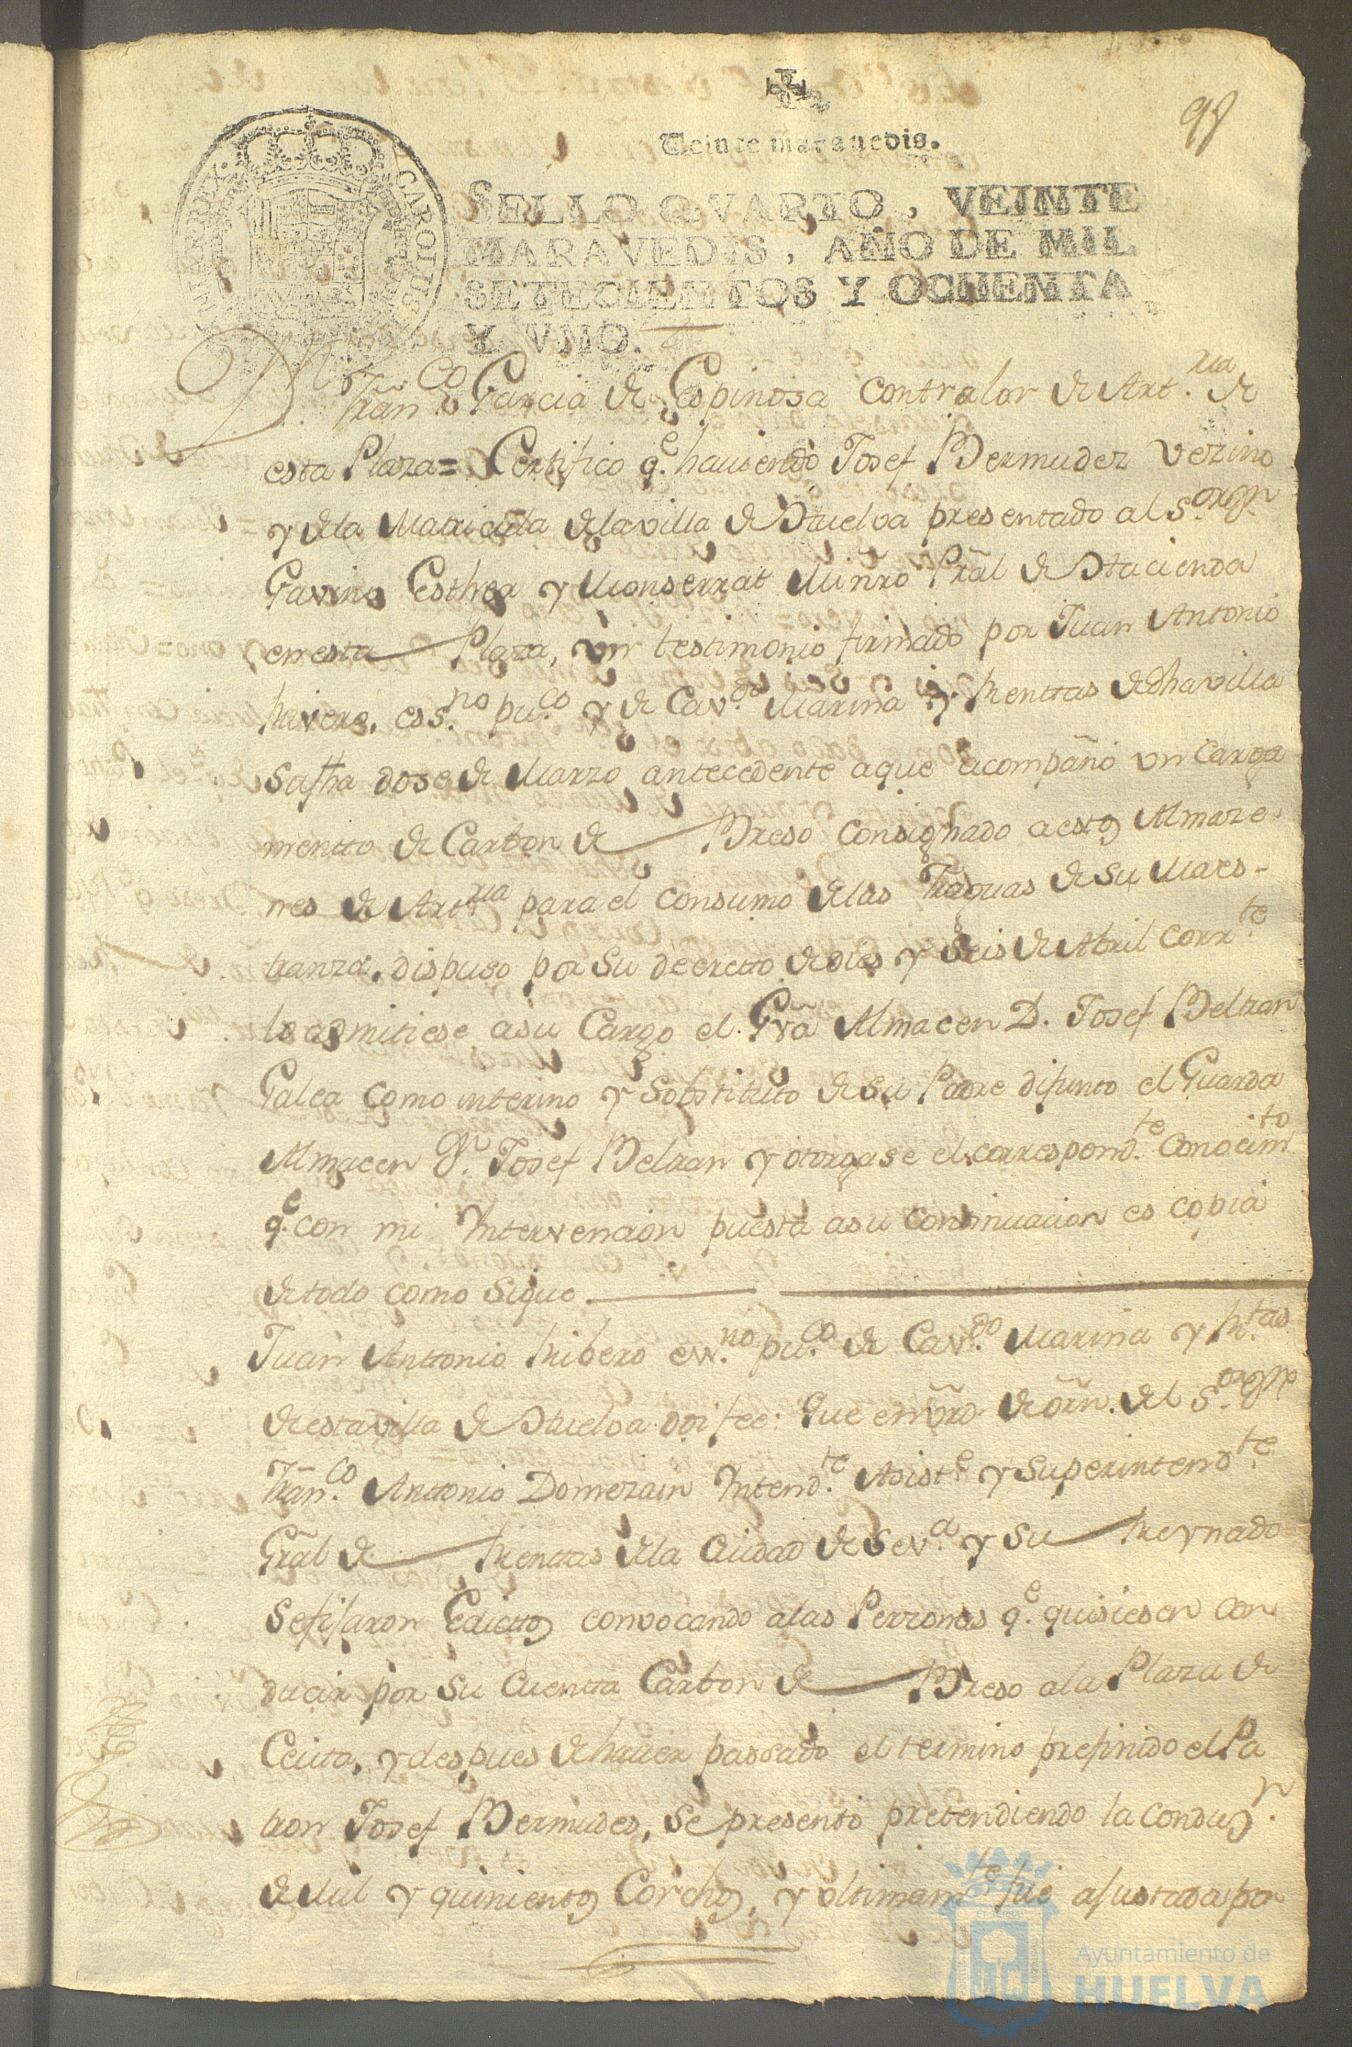 98
Veinte maravedis.
SELLO QVARTO, VEINTE
MARAVEDIS, AÑO DE MIL
SETECIENTOS Y OCHENTA
Y VNO.
CAROLUS
Dn Fran.co Garcia de Espinosa Contralor de Art.ria de
esta Plaza= Certifico q.e hauiendo Josef Bermudez Vezino
y dela Matricula dela villa de Huelva presentado al S.or Dn
Gavino Esthea y Monserrat Minro Pral de Hacienda
en esta Plaza, un testimonio firmado por Juan Antonio
Rivero, ess.no pu.co y de Cav.do Marina y Renttas de dha villa
su fha dose de Marzo antecedente aque acompañó un Carga
mentto de Carbon de Breso Consignado a estos Almaze-
nes de Art.ria para el consumo de las Fraguas de su Maes-
tranza, dispuso por su decretto de dies y seis de Abril Corr.te
lo admitiese asu Cargo el Gra Almacen D. Josef Beltran
Galea como interino y Sobstituto de su Padre difunto el Guarda
Almacen Dn. Josef Beltran y otorgase el correspond.te Conocim.to
q.e con mi Yntervencion puesta asu continuacion es copia
de todo como sigue
Juan Anttonio Ribero ess.no pu.co de Cav.do Marina y R.tas
de esta villa de Huelva doi fee: Que en vrd de orn. del S.or Dn
Fran.co Anttonio Domezain Yntend.te Asist.e y Superintend.te
Gral de Renttas dela Ciudad de Sev.a y su Reynado
se fijaron Edicttos convocando alas Perzonas q.e quisiesen con
ducir por su Cuentta Carbon de Breso ala Plaza de
Ceuta, y despues de hauer passado el termino prefinido el Pa
tron Josef Bermudes, se presentó pretendiendo la Conduz.n
de Mil y quinientos Corchos, y ultimam.te fue ajustada por
Ayuntamiento de
HUELVA